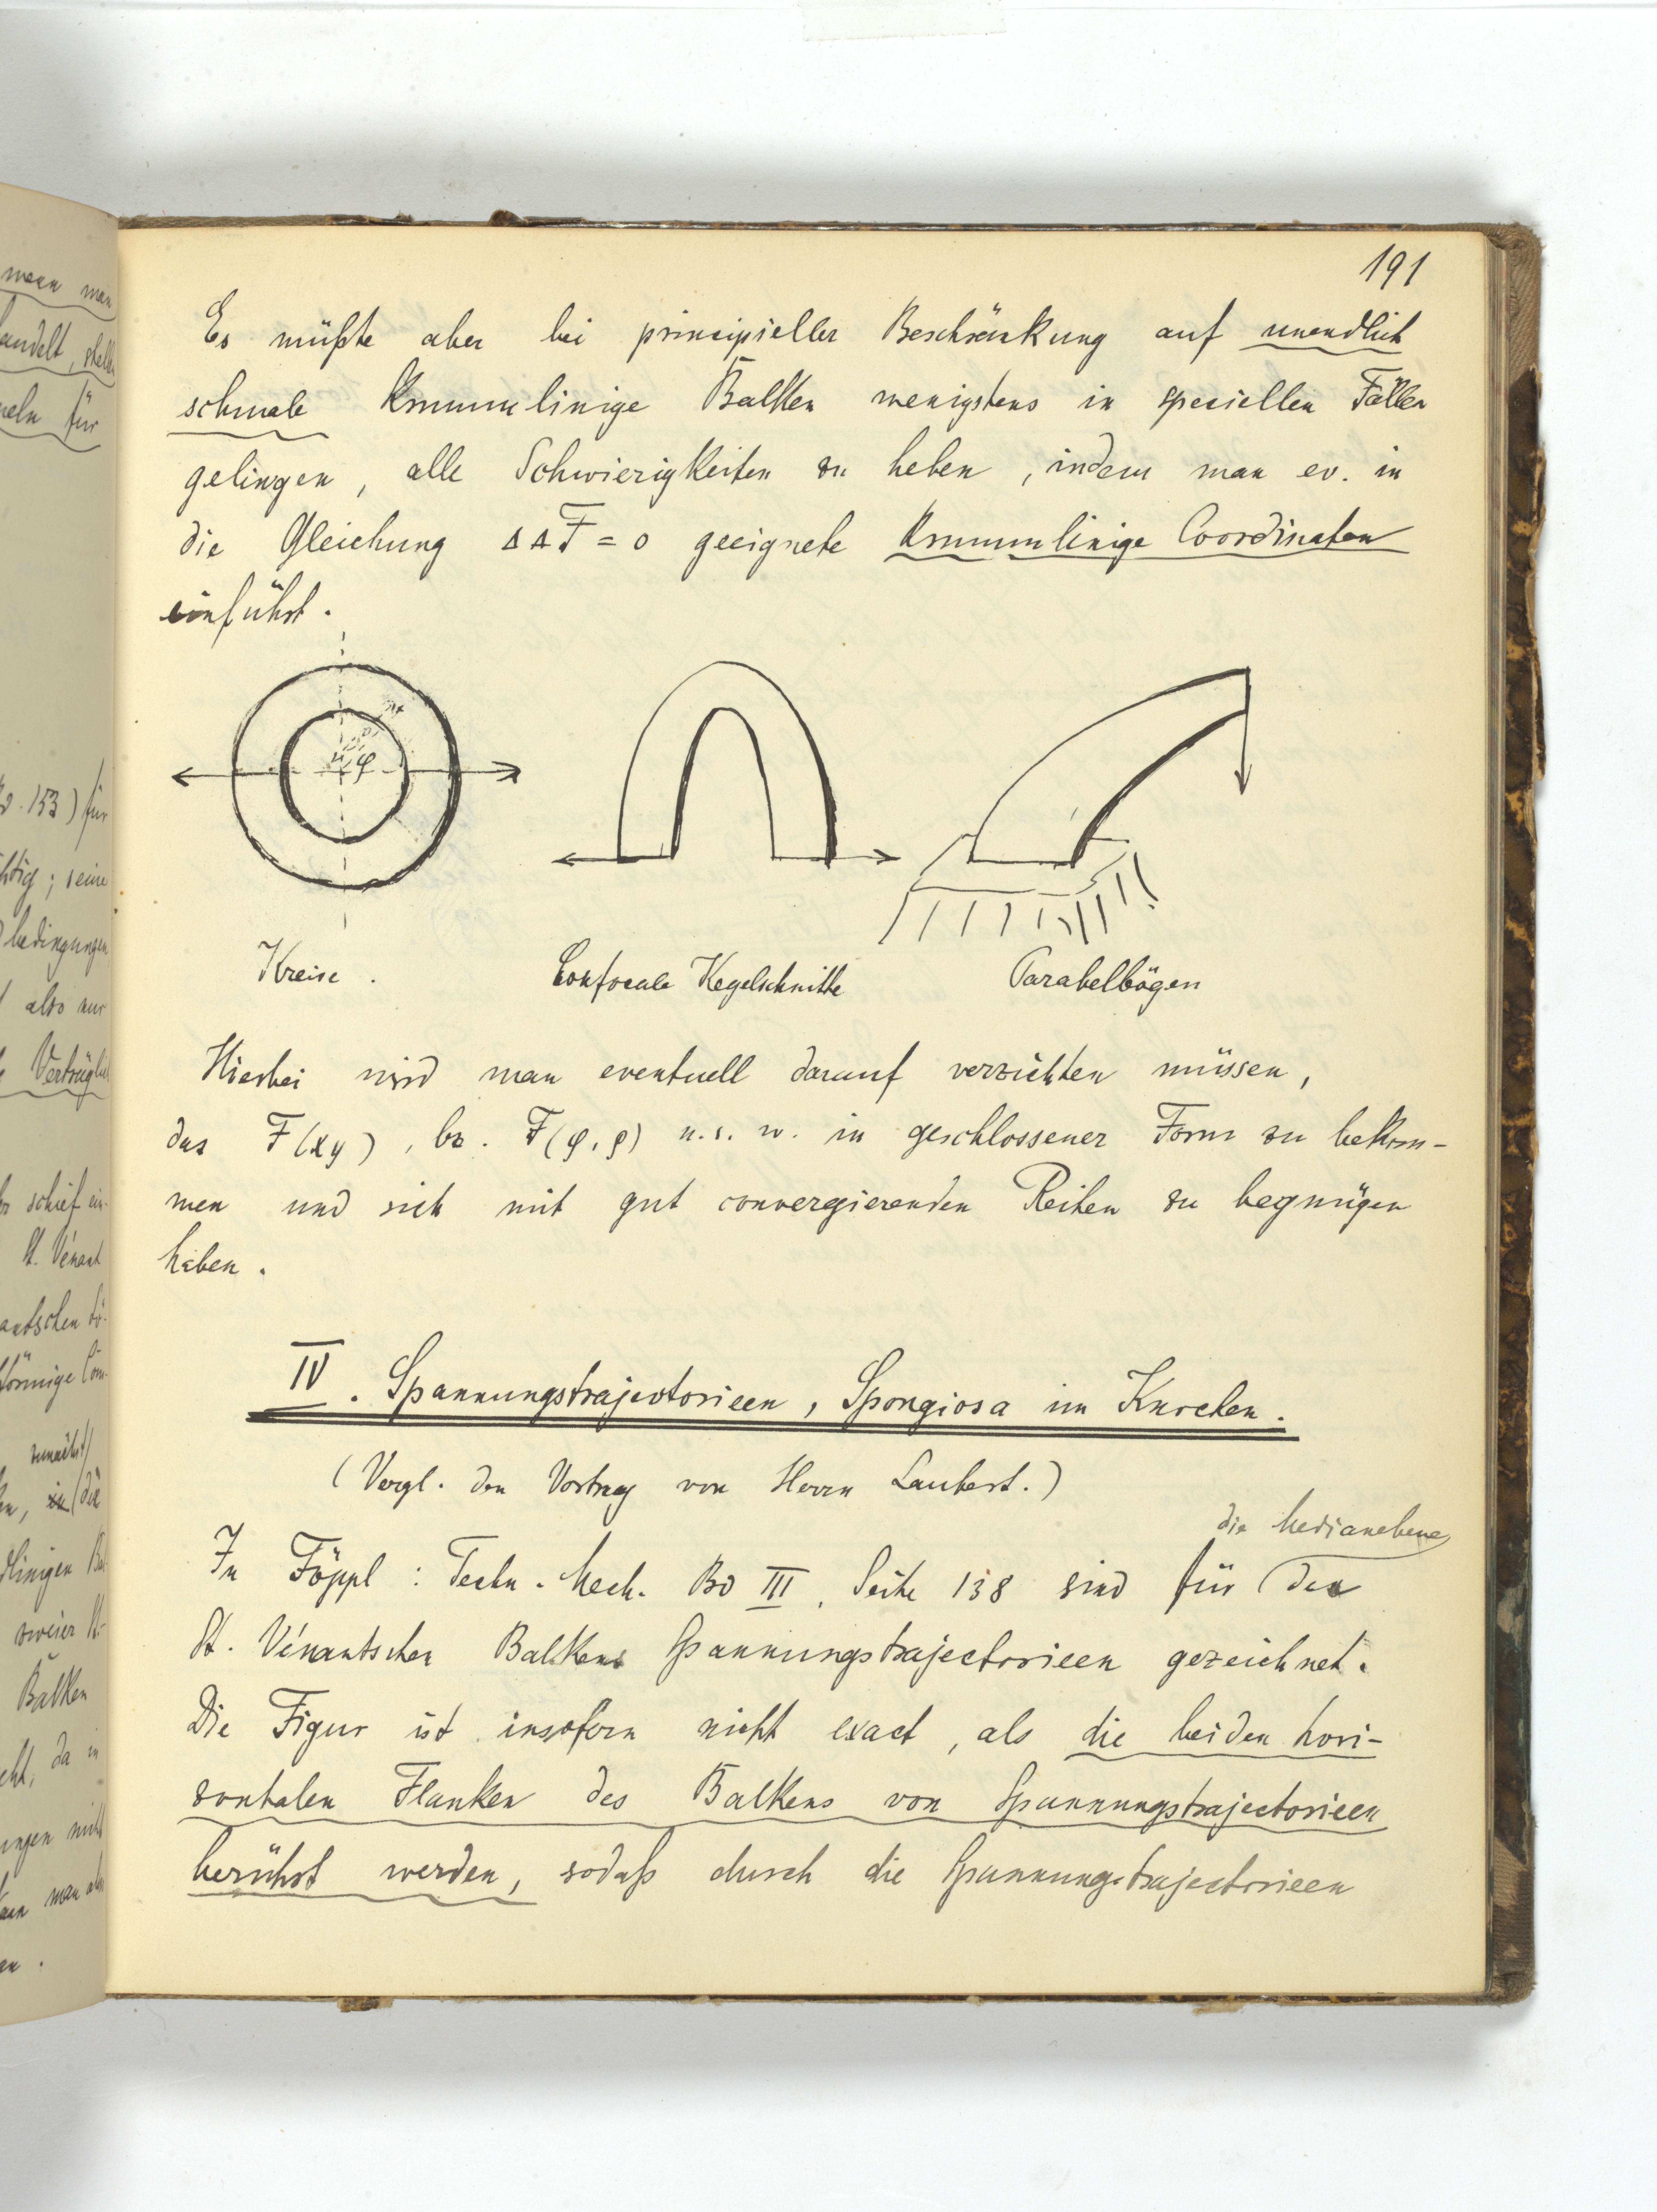 191
Es müßte aber bei principieller Beschränkung auf unendlich
schmale krummlinige Balken wenigstens in speciellen Fällen
gelingen, alle Schwierigkeiten zu heben, indem man ev. in
die Gleichung ΔΔF = 0 geeignete krummlinige Coordinaten
einführt.
φ
Kreise.
Confocale Kegelschnitte
Parabelbögen
Hierbei wird man eventuell darauf verzichten müssen,
das F(xy), bz. F(φ,ρ) u.s.w. in geschlossener Form zu bekom-
men und sich mit gut convergierenden Reihen zu begnügen
haben.
IV. Spannungstrajectorieen, Spongiosa im Knochen.
(Vergl. den Vortrag von Herrn Laubert.)
die Medianebene
In Föppl: Techn. Mech. Bd III, Seite 138 sind für des
St. Vénantschen Balkens Spannungstrajectorieen gezeichnet.
Die Figur ist insofern nicht exact, als die beiden hori-
zontalen Flanken des Balkens von Spannungstrajectorieen
berührt werden, sodaß durch die Spannungstrajectorieen
wenn man
für
153) für
seine
bedingungen
also nur
schief ein-
St. Vénant
zunächst
in die
zweier St.
Balken
da in
man